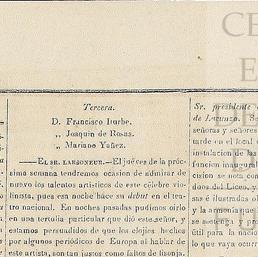 Tercera.
D. Francisco Iturbe.
„ Joaquin de Rosas.
„ Mariano Yañez.
——EL SR. LARSONEUR.—El juéves de la próc-
sima semana tendremos ocasion de admirar de
nuevo los talentos artísticos de este célebre vio-
linista, pues esa noche hace su debut en el tea-
tro nacional. No ha noches pudimos oirlo
en una tertulia particular que dió este señor, y
estamos persuadidos de que los elojios hechos
por algunos periódicos de Europa al hablar de
este artista, son tan justos como faltos de lisonja.
Sr. presidente
de Lucunza. So
señoras y señores
tarde en el local
instalacion de las
funcion inaugural
cision se nota
dos del Liceo, y
sas é ilustradas
y la armonía que
se propaga y prote
útil para la nacion
lo que vaya ocurr
CE
E
D